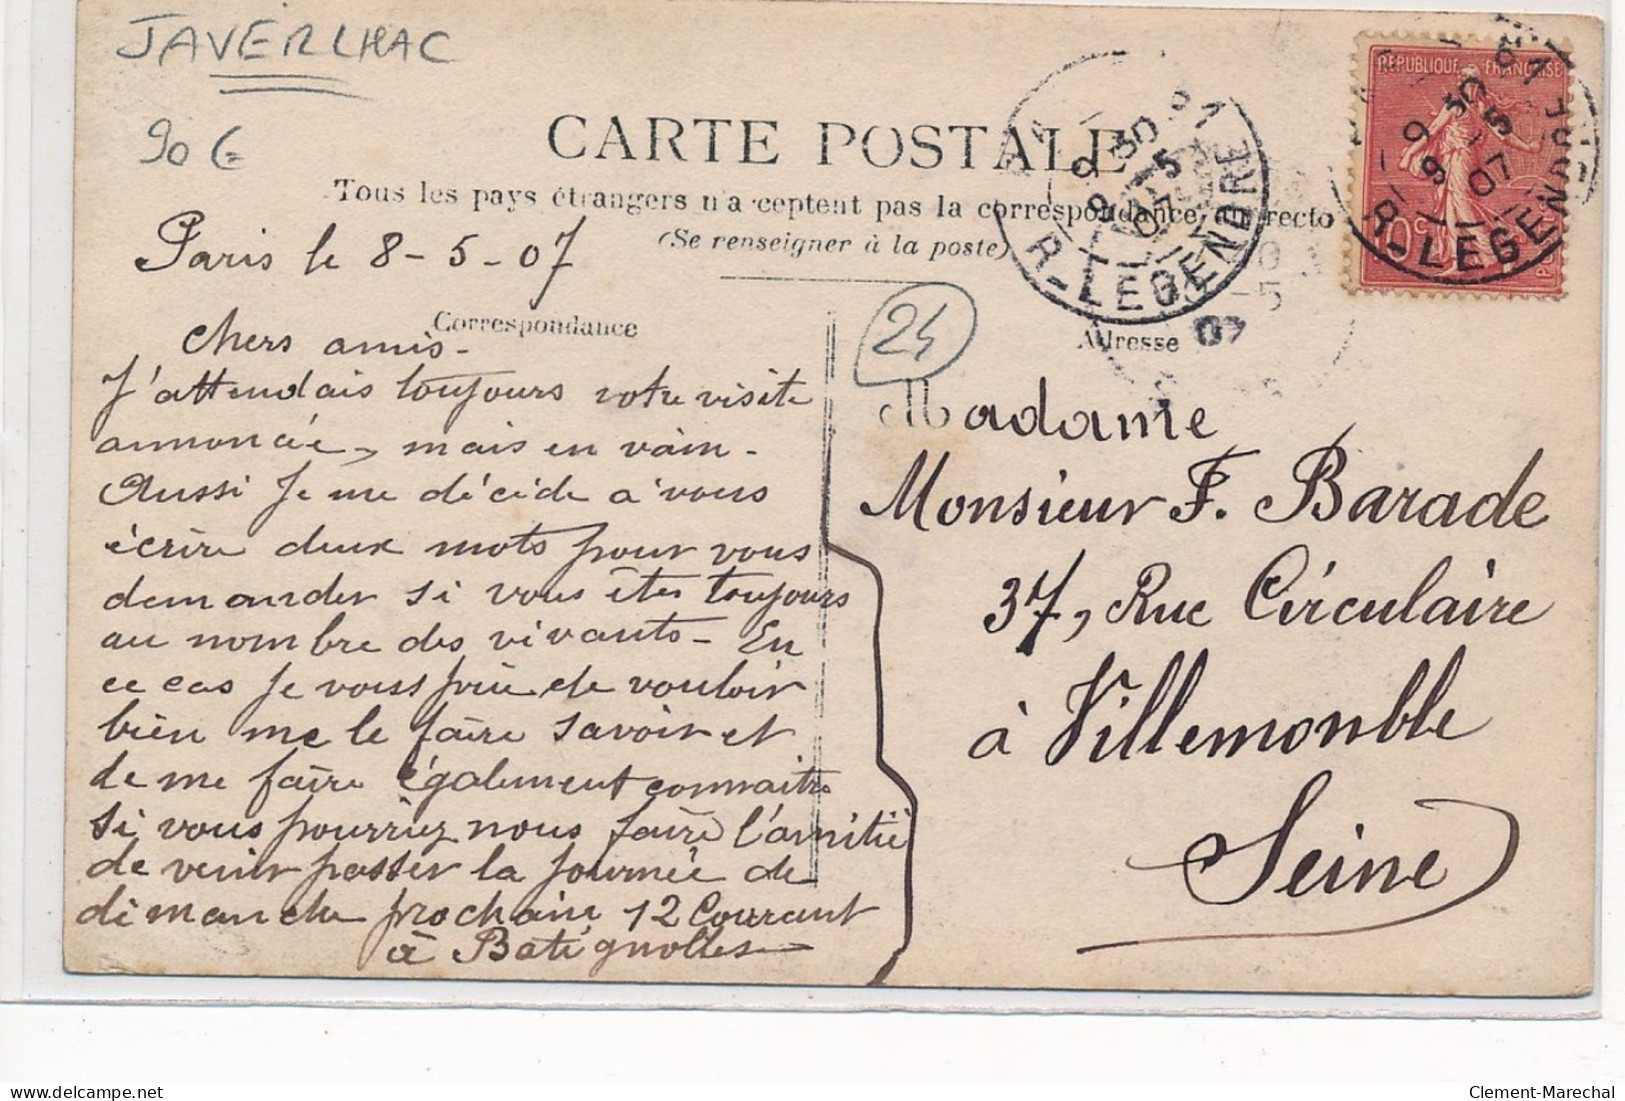 JAVERLHAC
90 €
CARTE POSTALE
Tous les pays étrangers n'acceptent pas la correspondance au recto
(Se renseigner à la poste)
Paris le 8-5-07
Correspondance
Chers amis-
J'attendais toujours votre visite
annoncée, mais en vain-
Aussi je me décide à vous
écrire deux mots pour vous
demander si vous êtes toujours
au nombre des vivants- En
ce cas je vous prie de vouloir
bien me le faire savoir et
de me faire également connaitre
si vous pourriez nous faire l'amitié
de venir passer la journée de
dimanche prochain 12 Courant
à Batignolles-
24
Adresse
Madame
Monsieur F. Barade
37, Rue Circulaire
à Villemonble
Seine
REPUBLIQUE FRANÇAISE
10 c
9 30
8 5
07
R. LEGENDRE
9 30
8 5
07
R. LEGENDRE
-5
07
delcampe.net
Clement-Marechal